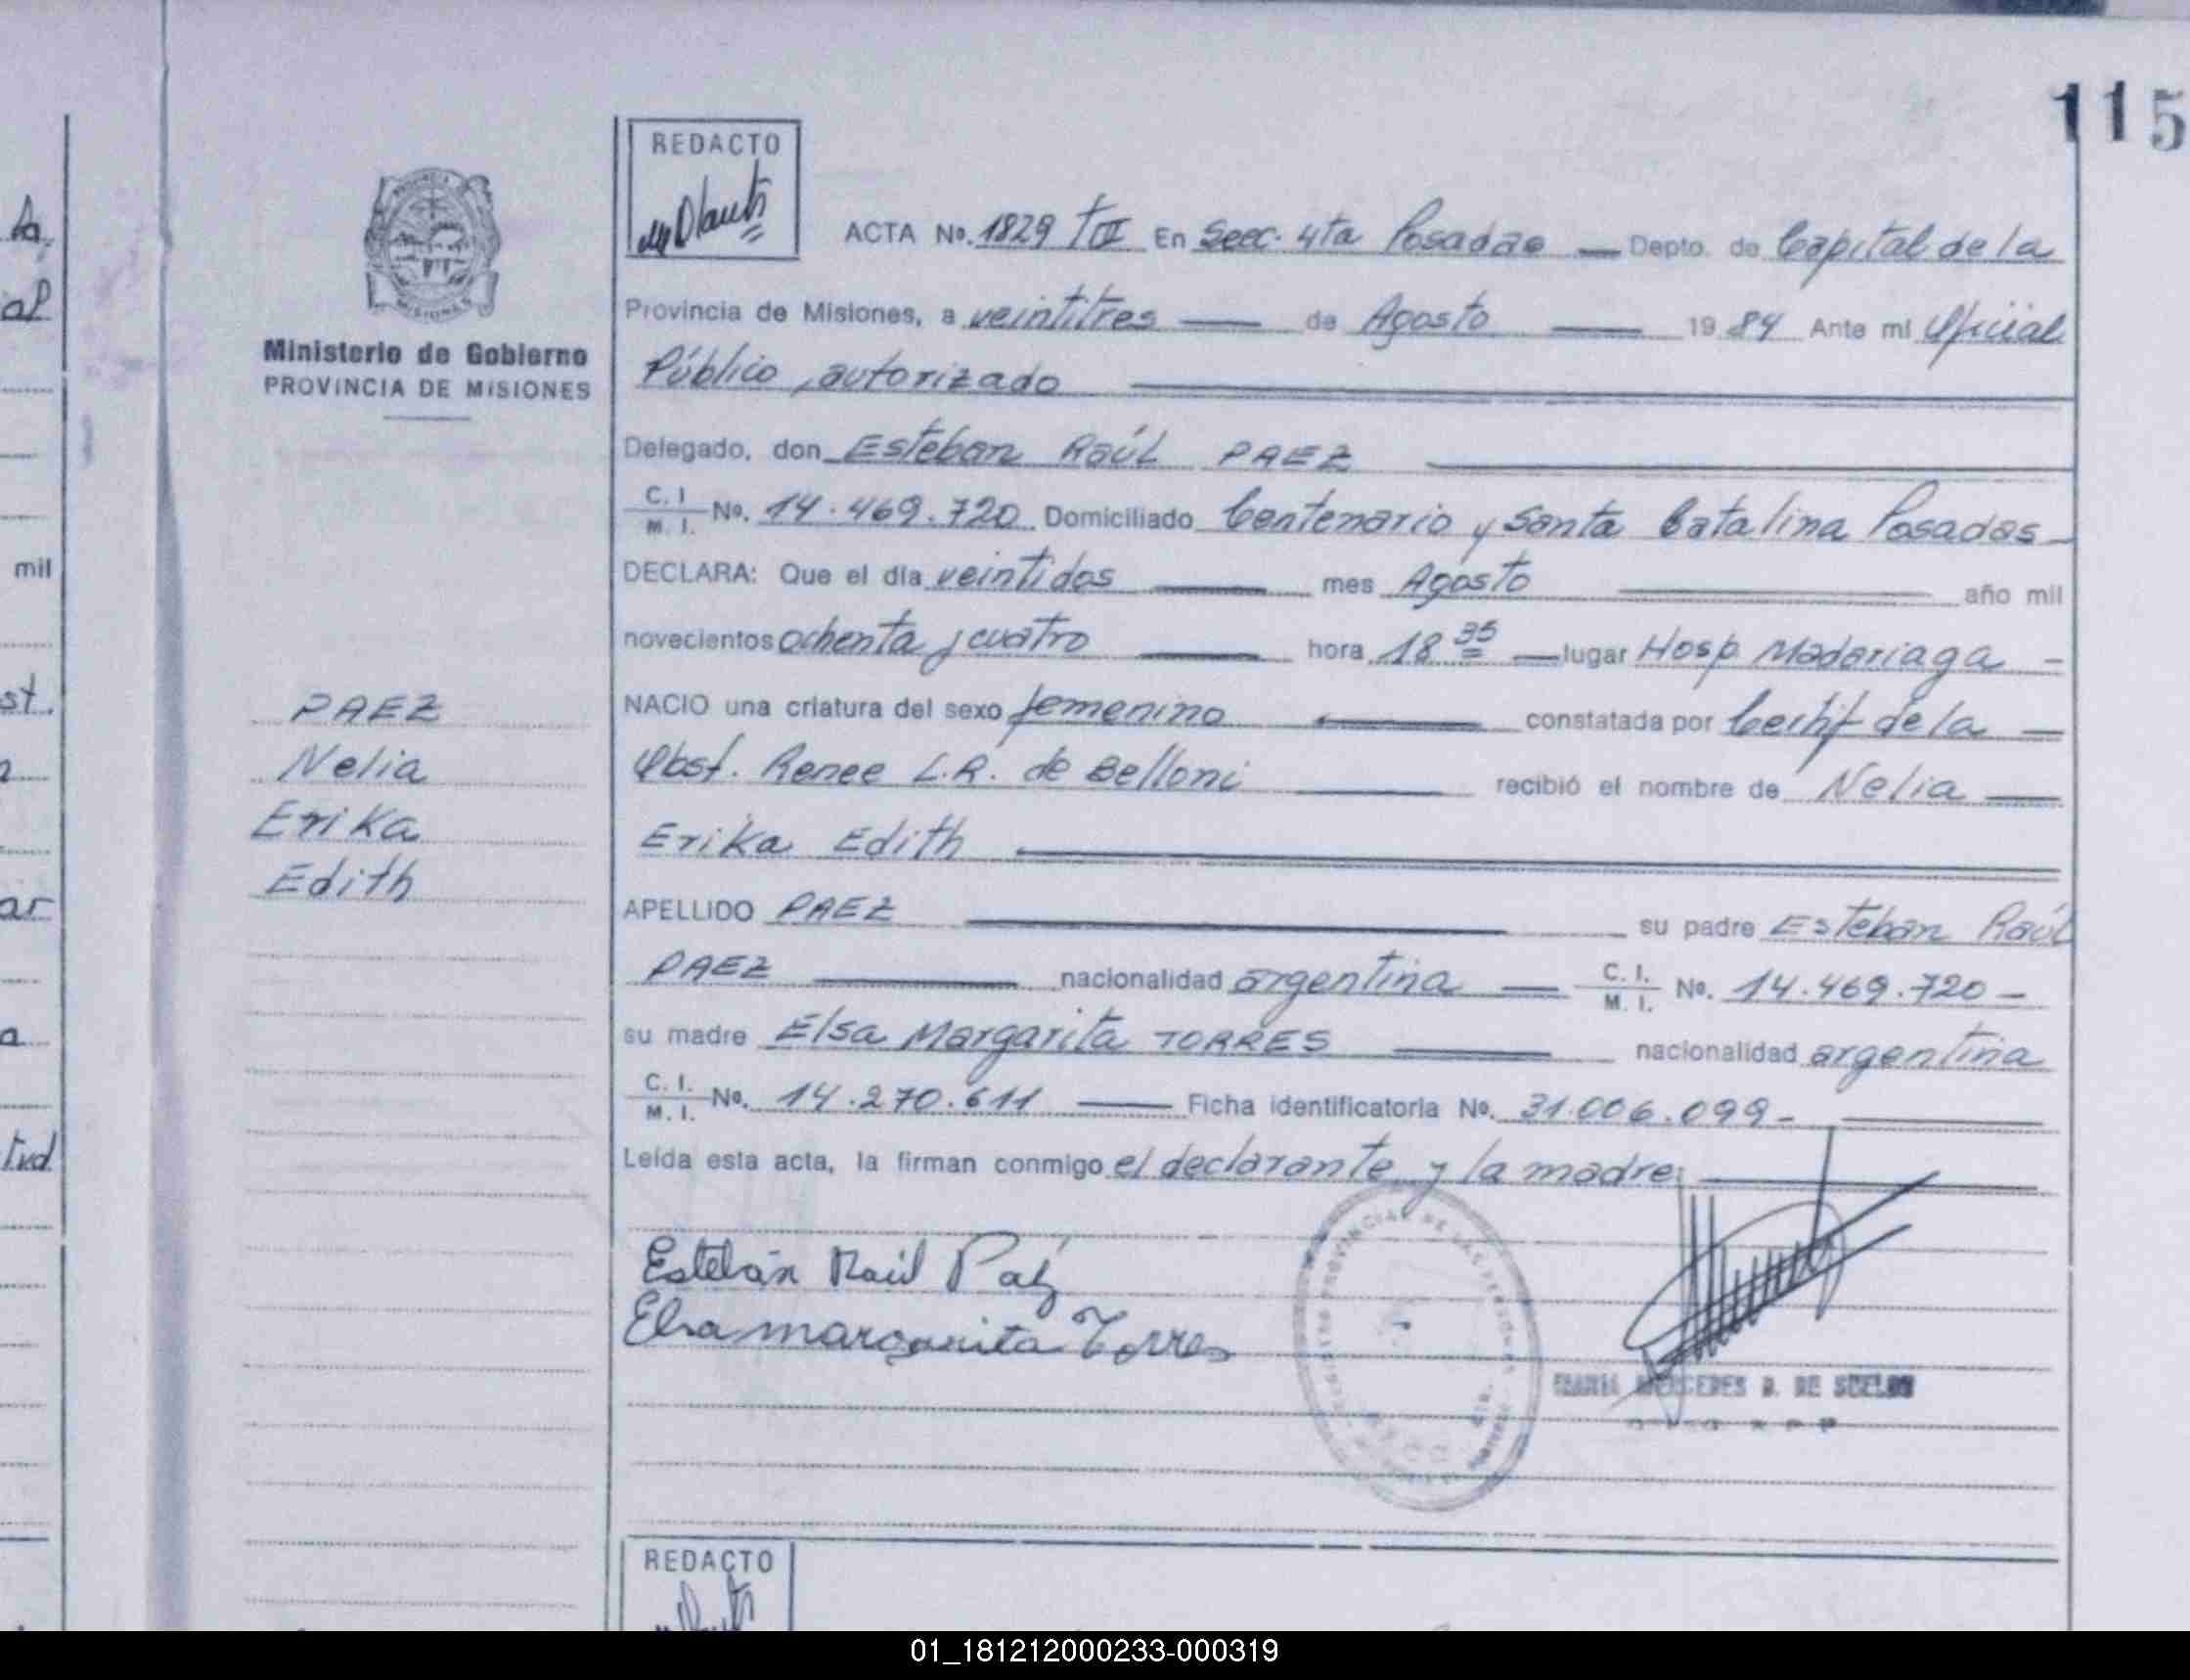 115
REDACTO
ACTA No. 1829 TII En Secc. 4ta Posadas — Depto. de Capital de la
Provincia de Misiones, a veintitres — de Agosto — 19 84 Ante mi Oficial
Público, autorizado
Ministerio de Gobierno
PROVINCIA DE MISIONES
Delegado, don Esteban Raúl PAEZ
C. I. / M. I. No. 14.469.720 Domiciliado Centenario y Santa Catalina Posadas
DECLARA: Que el día veintidos — mes Agosto — año mil
novecientos ochenta y cuatro — hora 18 35 — lugar Hosp. Madariaga -
NACIO una criatura del sexo femenino — constatada por Certif de la —
Obst. Renee L.R. de Belloni — recibió el nombre de Nelia —
Erika Edith
PAEZ
Nelia
Erika
Edith
APELLIDO PAEZ — su padre Esteban Raúl
PAEZ — nacionalidad argentina — C. I. / M. I. No. 14.469.720 -
su madre Elsa Margarita TORRES — nacionalidad argentina
C. I. / M. I. No. 14.270.611 — Ficha identificatoria No. 31.006.099 -
Leída esta acta, la firman conmigo el declarante y la madre
Esteban Raúl Paéz
Elsa margarita Torres
MARIA MERCEDES D. DE
REDACTO
mil
st.
al
ar
01_181212000233-000319